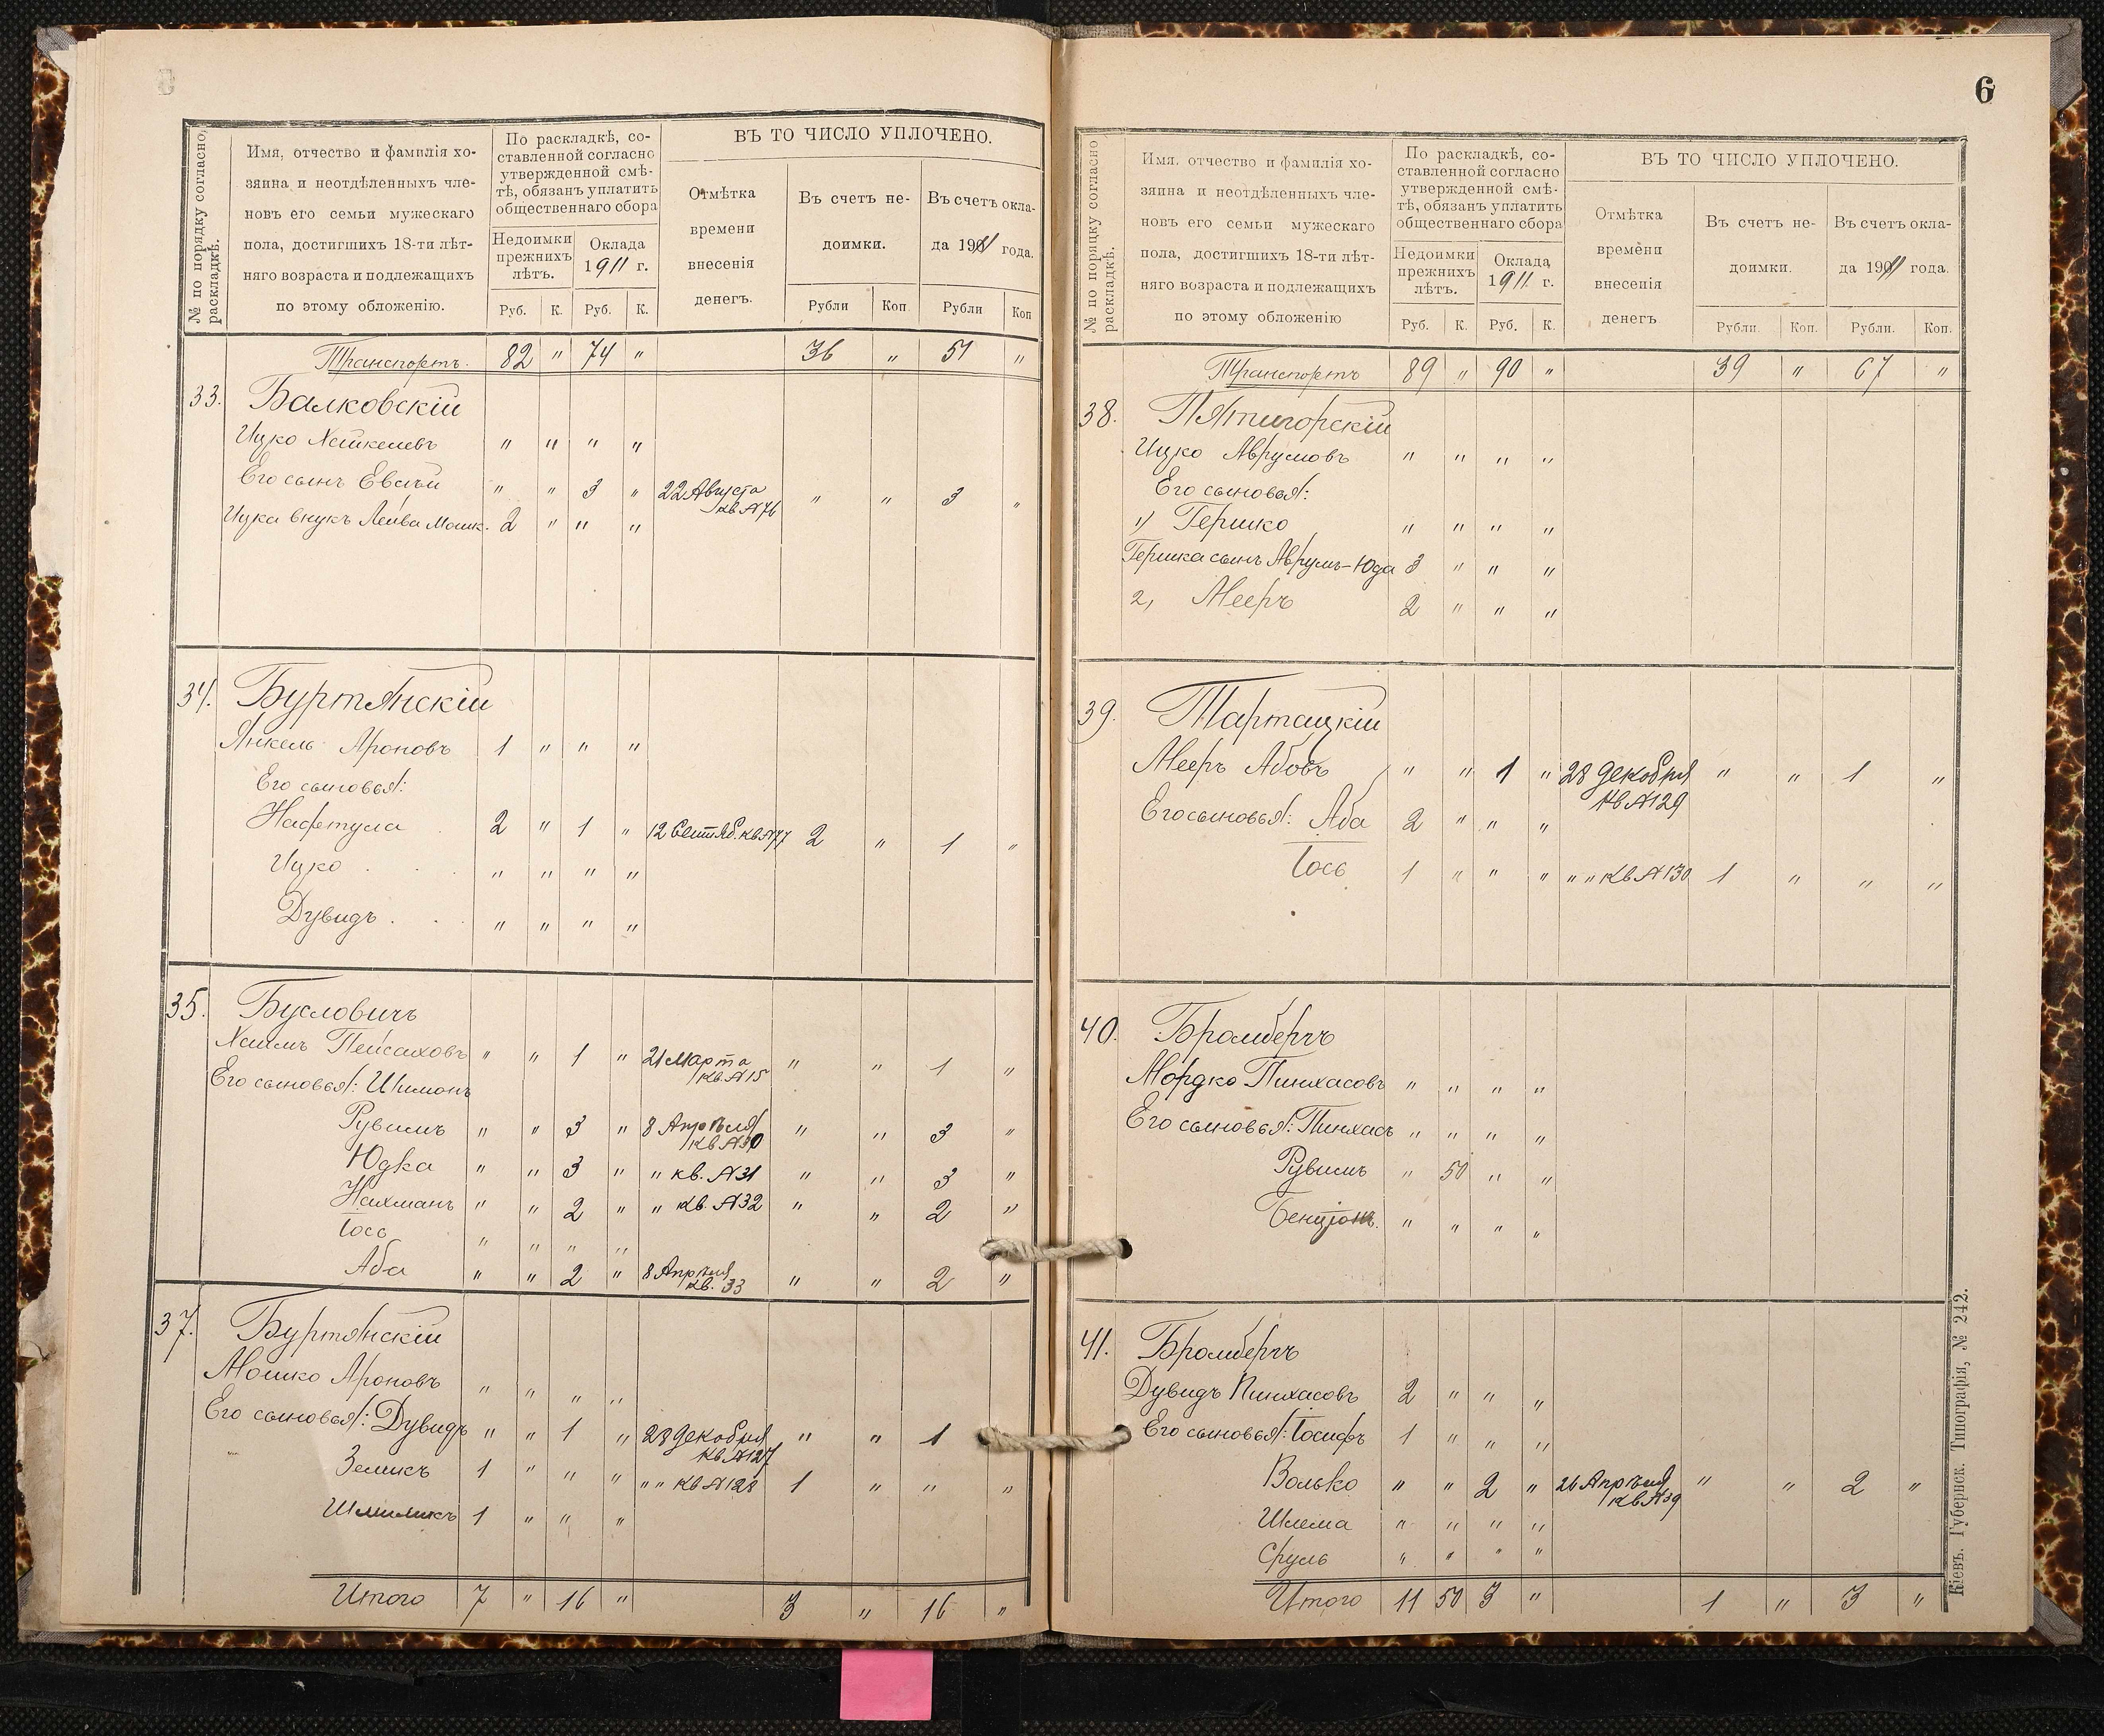 № по порядку согласно раскладкѣ.
Имя, отчество и фамилія хо-
зяина и неотдѣленныхъ чле-
новъ его семьи мужескаго
пола, достигшихъ 18-ти лѣт-
няго возраста и подлежащихъ
по этому обложенію.
По раскладкѣ, со-
ставленной согласно
утвержденной смѣ-
тѣ, обязанъ уплатить
общественнаго сбора
Недоимки прежнихъ лѣтъ.
Оклада 1911 г.
Руб. К. Руб. К.
ВЪ ТО ЧИСЛО УПЛОЧЕНО.
Отмѣтка
времени
внесенія
денегъ.
Въ счетъ не-
доимки.
Въ счетъ окла-
да 1911 года.
Рубли Коп. Рубли Коп
Транспортъ. 82 " 74 " 36 " 51 "
33. Балковскій
Ицко Хашкелевъ " " " "
Его сынъ Евсѣй " " 3 " 22 Августа " " 3 "
кв №76
Ицка внукъ Лейва Мошк. 2 " " "
34. Буртянскій
Янкель Ароновъ 1 " " "
Его сыновья:
Нафтула 2 " 1 " 12 Сентяб. кв №77 2 " 1 "
Ицко " " " "
Дувидъ " " " "
35. Бусловичъ
Хаимъ Пейсаховъ " " 1 " 21 Марта " " 1 "
кв. №15
Его сыновья: Шимонъ
Рувимъ " " 3 " 8 Апрѣля " " 3 "
кв №30
Юдка " " 3 " " кв. №31 " " 3 "
Нахманъ " " 2 " " кв. №32 " " 2 "
Іось " " " "
Аба " " 2 " 8 Апрѣля " " 2 "
кв. 33
37. Буртянскій
Мошко Ароновъ " " " "
Его сыновья: Дувидъ " " 1 " 28 декабря " " 1
кв №127
Зеликъ 1 " " " " " кв №128 1 " " "
1 " " "
Итого 7 " 16 " 3 " 16 "
6
№ по порядку согласно раскладкѣ.
Имя, отчество и фамилія хо-
зяина и неотдѣленныхъ чле-
новъ его семьи мужескаго
пола, достигшихъ 18-ти лѣт-
няго возраста и подлежащихъ
по этому обложенію
По раскладкѣ, со-
ставленной согласно
утвержденной смѣ-
тѣ, обязанъ уплатить
общественнаго сбора
Недоимки прежнихъ лѣтъ.
Оклада 1911 г.
Руб. К. Руб. К.
ВЪ ТО ЧИСЛО УПЛОЧЕНО.
Отмѣтка
времени
внесенія
денегъ
Въ счетъ не-
доимки.
Въ счетъ окла-
да 1911 года.
Рубли Коп. Рубли. Коп.
Транспортъ 89 " 90 " 39 " 67 "
38. Пятигорскій
Ицко Аврумовъ " " " "
Его сыновья:
1/ Гершко " " " "
Гершка сынъ Аврумъ-Юда 3 " " "
2, Мееръ 2 " " "
39. Тартацкій
Мееръ Абовъ " " 1 " 28 декабря " " 1 "
кв №129
Его сыновья: Аба 2 " " "
Іось 1 " " " " " кв №130 1 " " "
40. Бромбергъ
Мордко Пинхасовъ " " " "
Его сыновья: Пинхасъ " " " "
Рувимъ " 50 " "
Бенціонъ. " " " "
41. Бромбергъ
Дувидъ Пинхасовъ 2 " " "
Его сыновья: Іосифъ 1 " " "
Волько " " 2 " 26 Апрѣля " " 2 "
кв №39
Шлема " " " "
Сруль " " " "
Итого 11 50 3 " 1 " 3 "
Кіевъ. Губернск. Типографія, № 242.